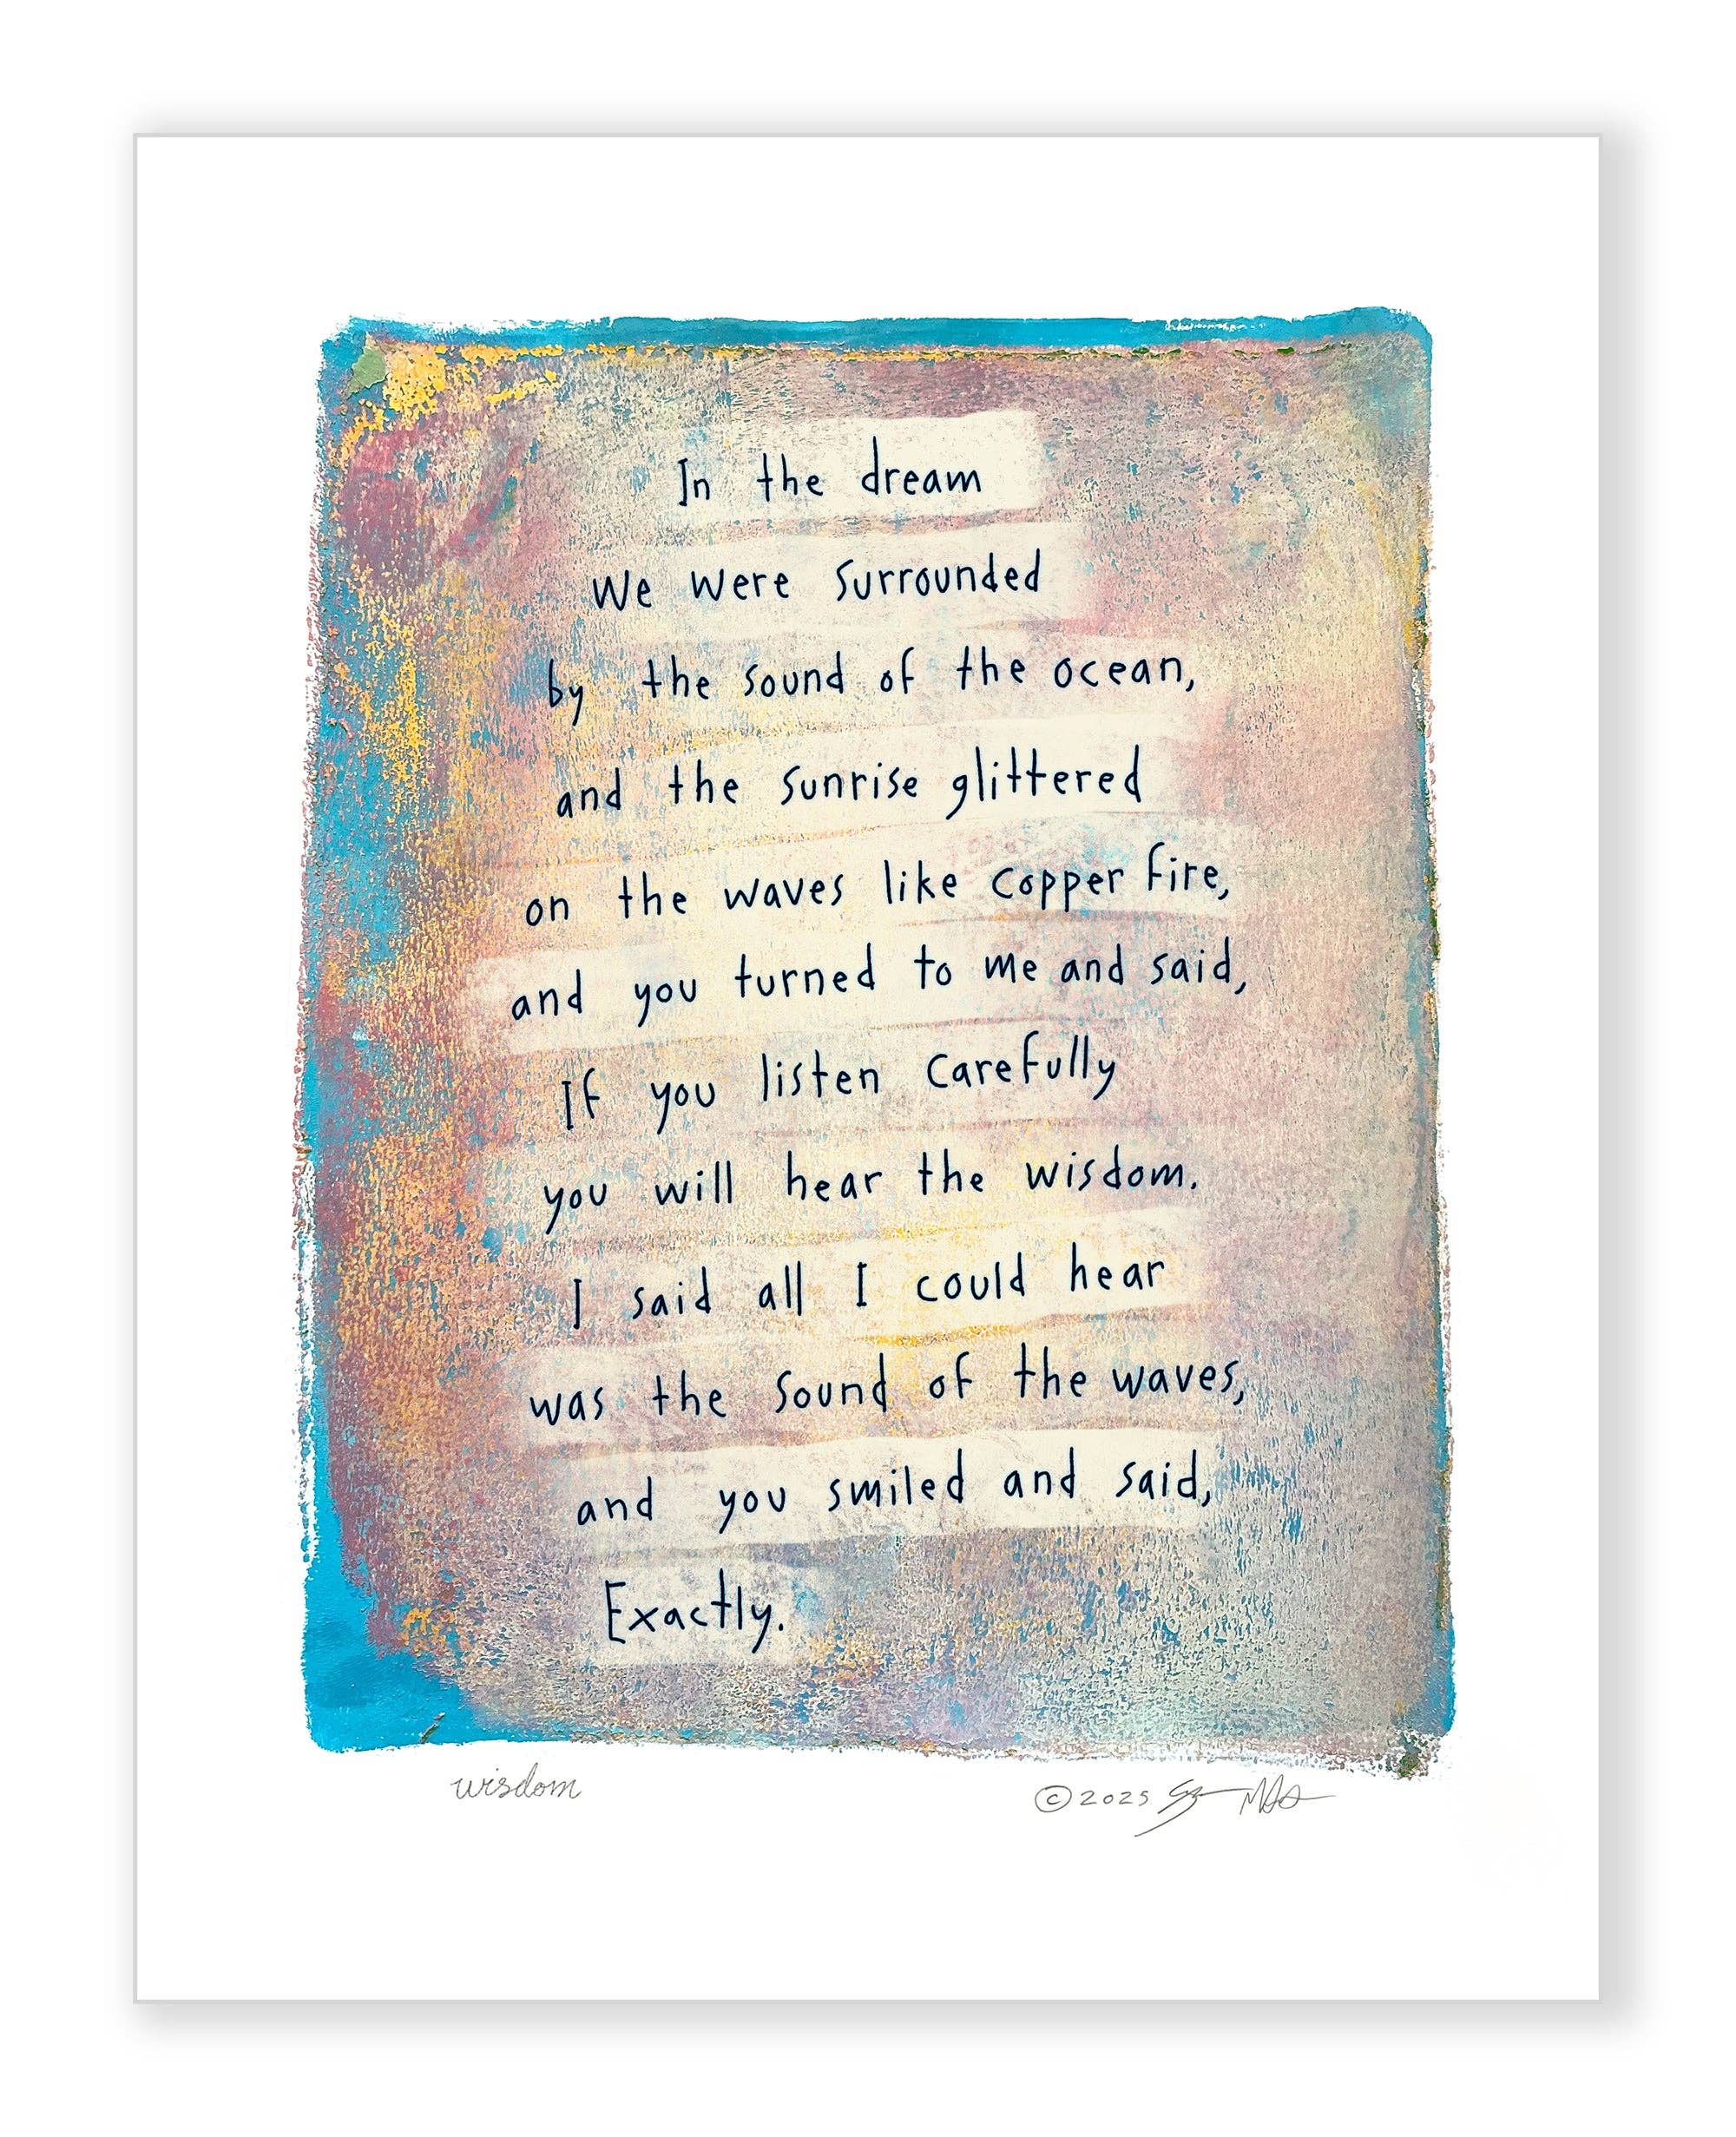 In the dream
we were surrounded
by the sound of the ocean,
and the sunrise glittered
on the waves like copper fire,
and you turned to me and said,
If you listen carefully
you will hear the wisdom.
I said all I could hear
was the sound of the waves,
and you smiled and said,
Exactly.
wisdom
©2025